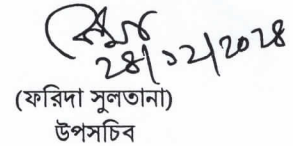 ২৪/১২/২০২৪
(ফরিদা সুলতানা)
উপসচিব